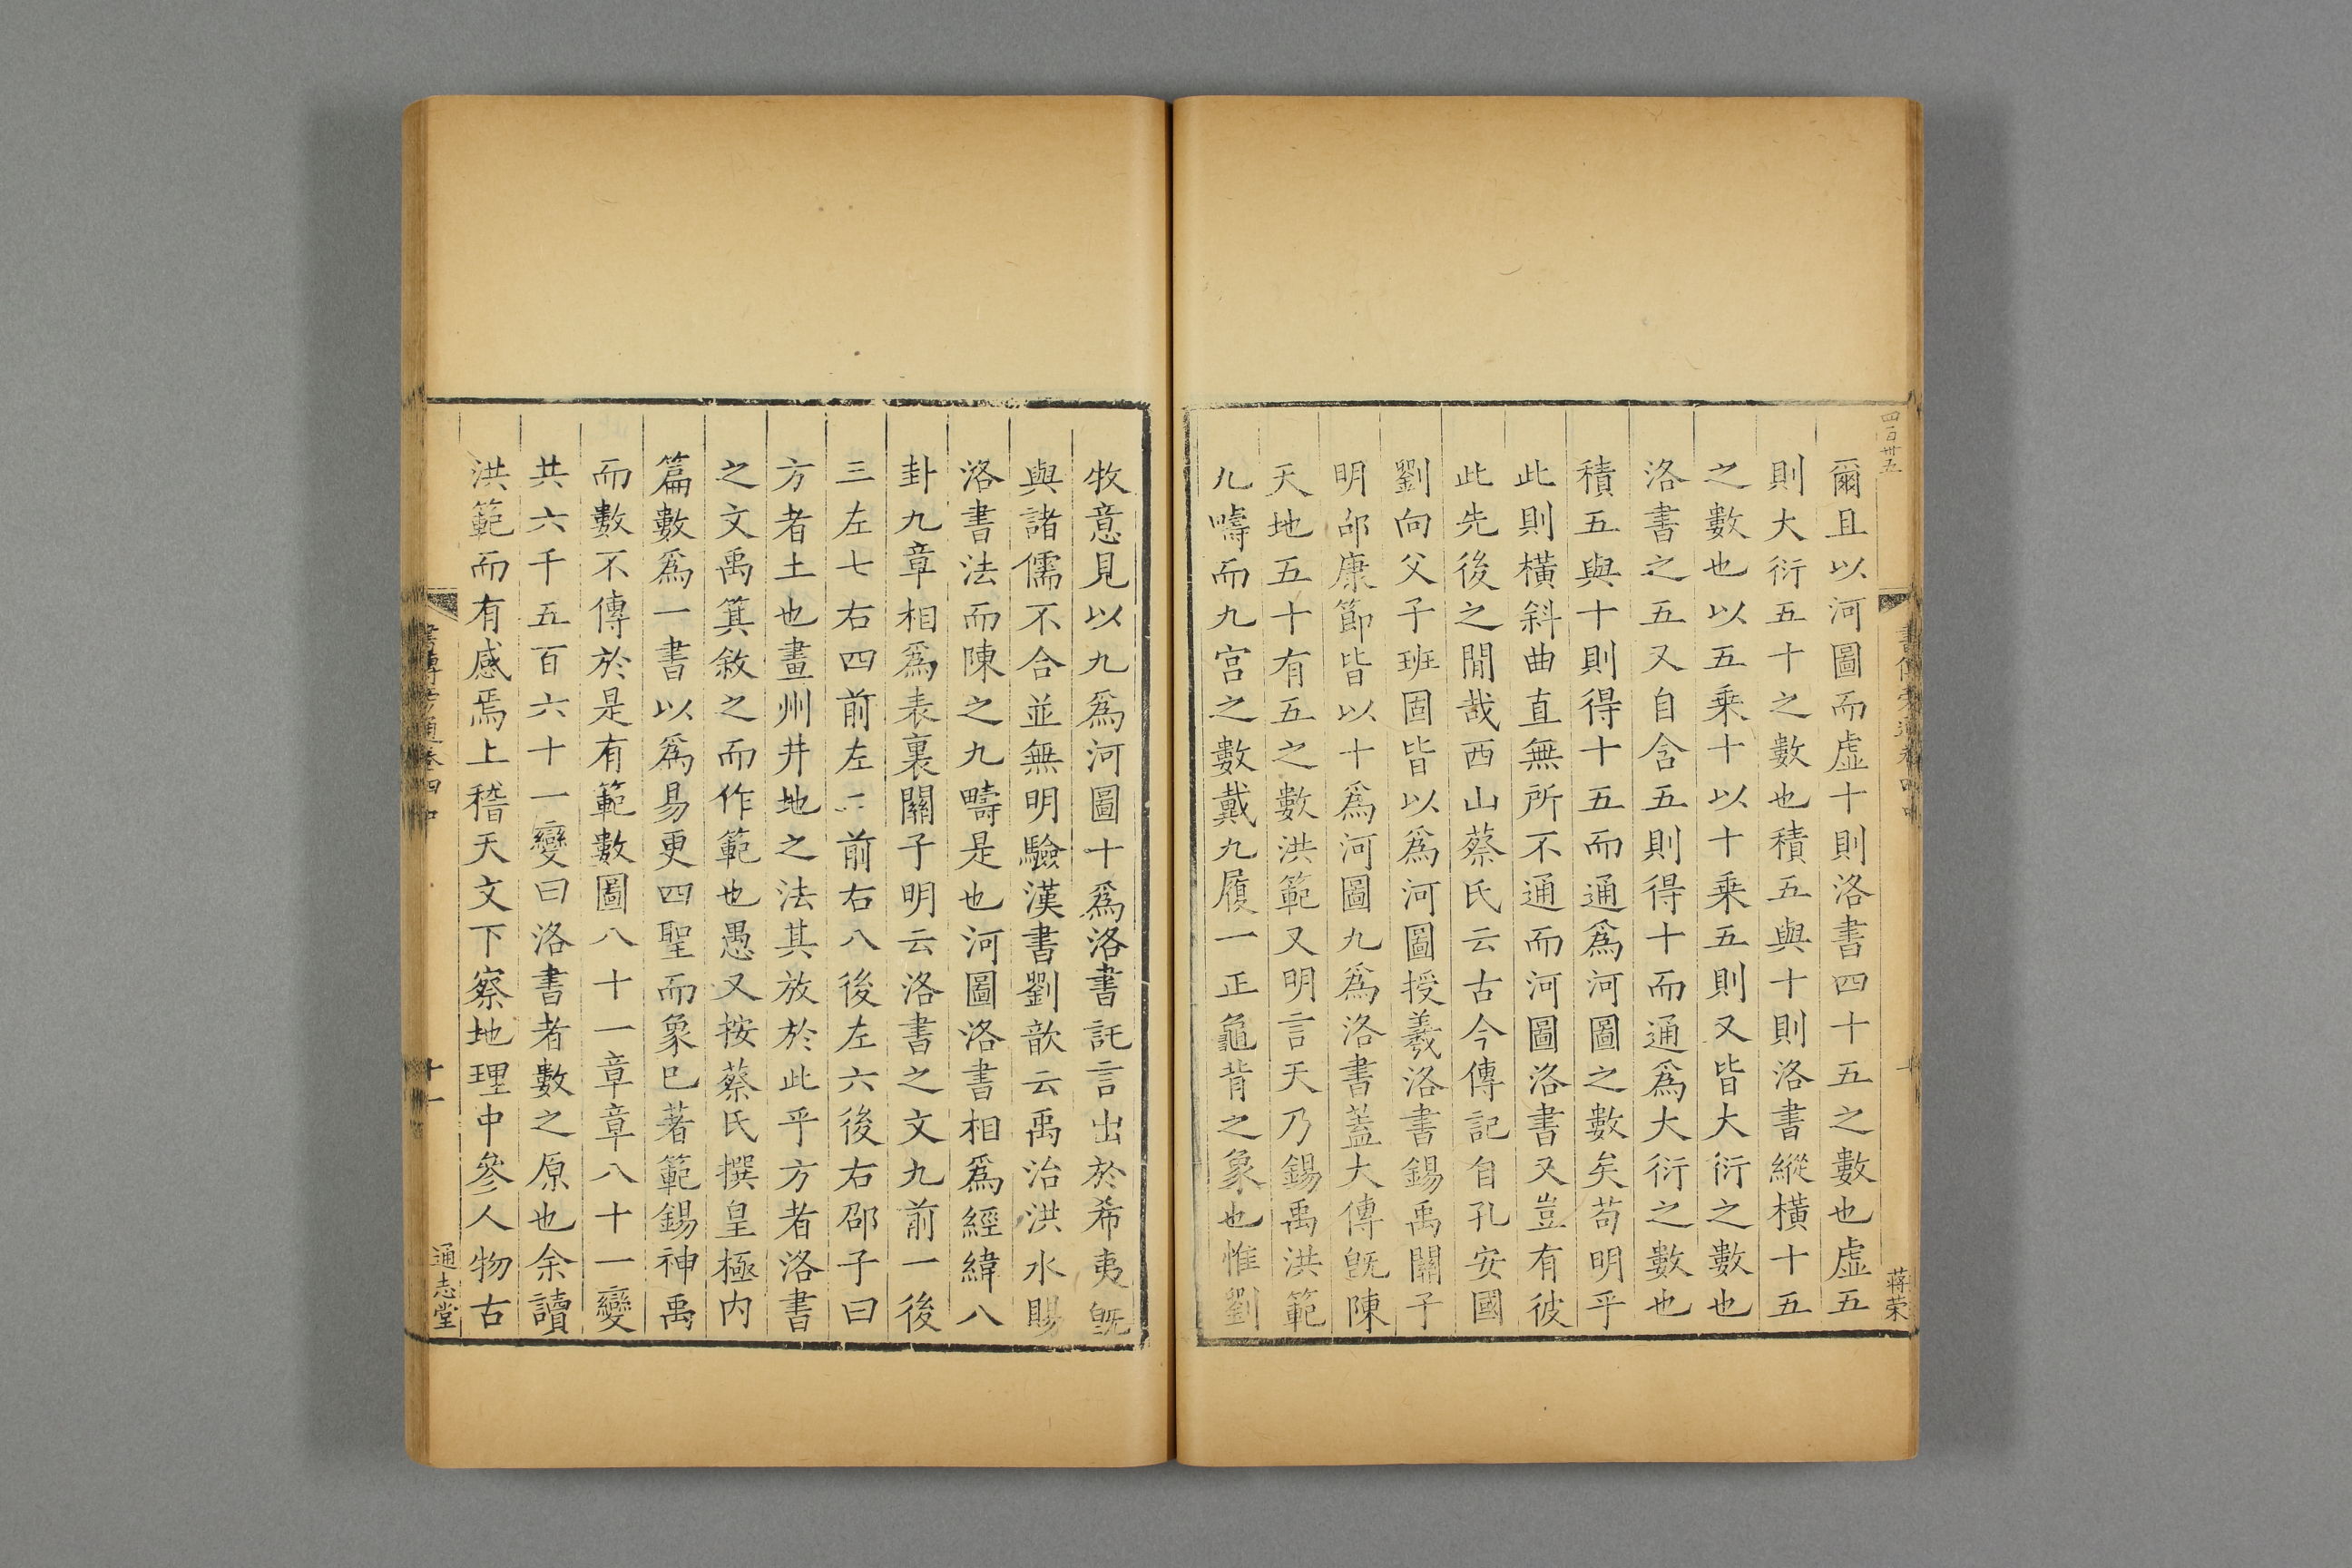 四百卅五
爾且以河圖而虛十則洛書四十五之數也虛五
則大衍五十之數也積五與十則洛書縱橫十五
之數也以五乗十以十乗五則又皆大衍之數也
洛書之五又自含五則得十而通爲大衍之數也
積五與十則得十五而通爲河圖之數矣苟明乎
此則橫斜曲直無所不通而河圖洛書又豈有彼
此先後之閒哉西山蔡氏云古今傳記自孔安國
劉向父子班固皆以爲河圖授羲洛書錫禹關子
明邵康節皆以十爲河圖九爲洛書蓋大傳旣陳
天地五十有五之數洪範又明言天乃錫禹洪範
九疇而九宫之數戴九履一正龜背之象也惟劉
蒋荣
牧意見以九爲河圖十爲洛書託言出於希夷旣
與諸儒不合並無明驗漢書劉歆云禹治洪水賜
洛書法而陳之九疇是也河圖洛書相爲經緯八
卦九章相爲表裏關子明云洛書之文九前一後
三左七右四前左二前右八後左六後右邵子曰
方者土也畫州井地之法其放於此乎方者洛書
之文禹箕敘之而作範也愚又按蔡氏撰皇極内
篇數爲一書以爲易更四聖而象已著範錫神禹
而數不傳於是有範數圖八十一章章八十一變
共六千五百六十一變曰洛書者數之原也余讀
洪範而有感焉上稽天文下察地理中參人物古
書傳旁通卷四中
十一
通志堂